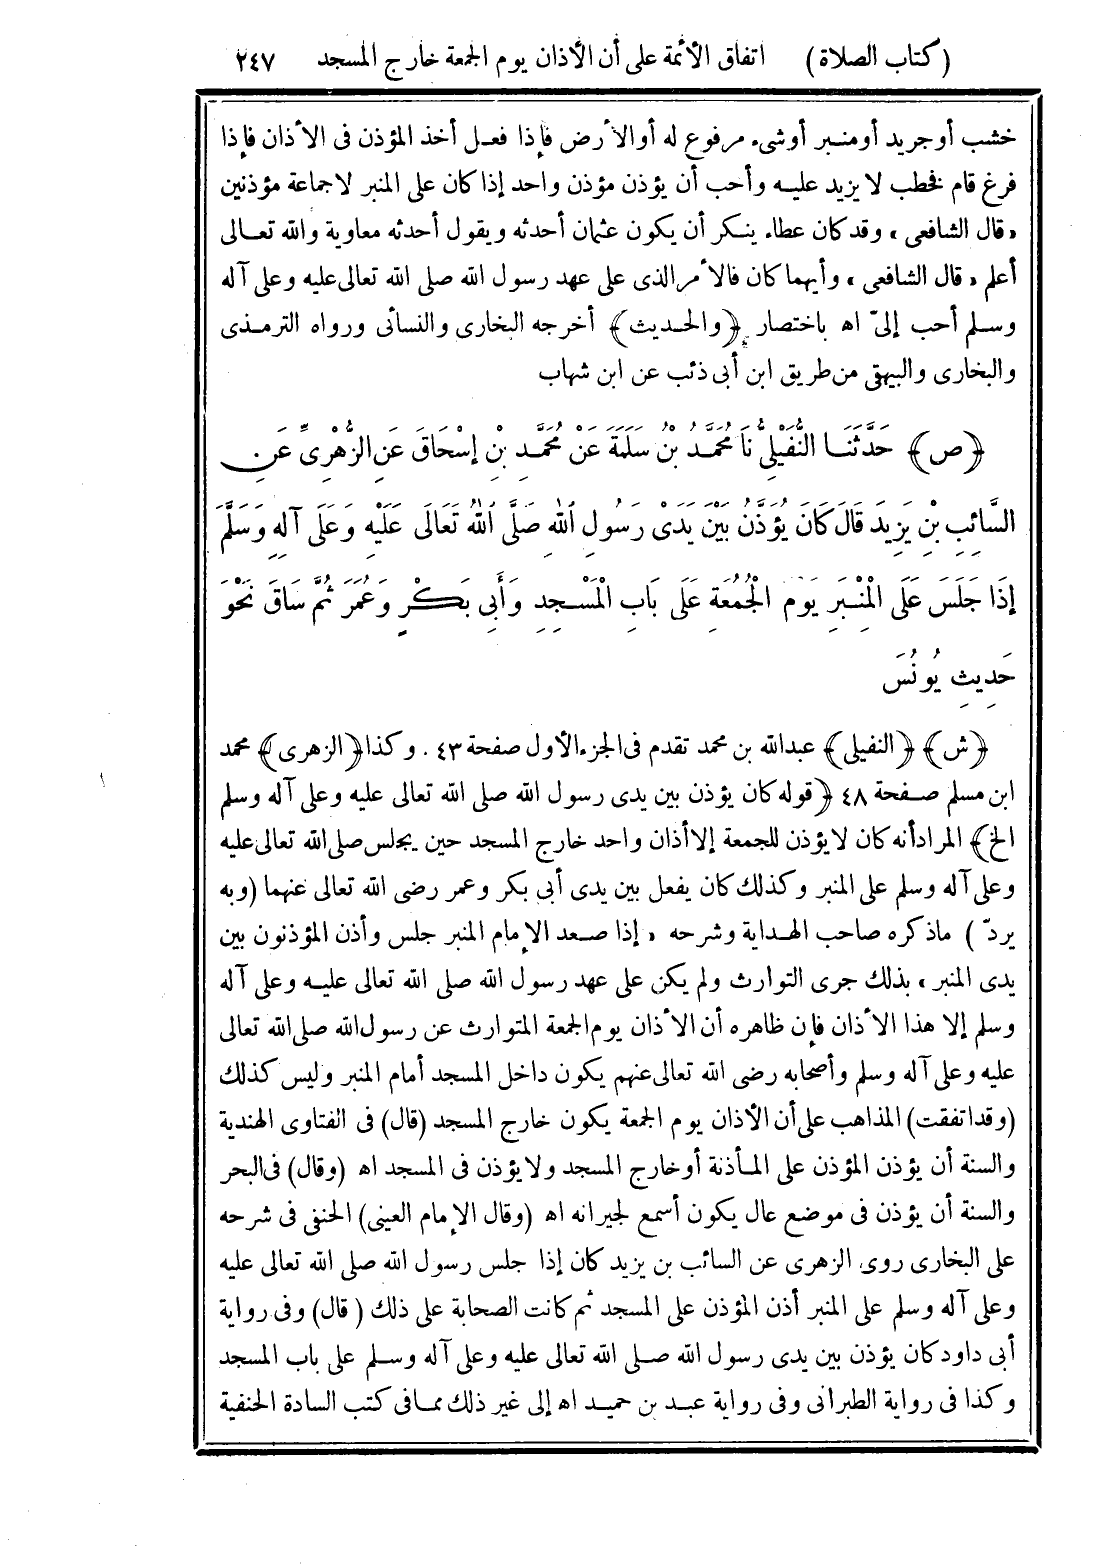 (كتاب الصلاة) اتفاق الأئمة على أن الأذان يوم الجمعة خارج المسجد ٢٤٧
خشب أوجريد أومنبر أوشىء مرفوع له أوالأرض فإذا فعل أخذ المؤذن فى الأذان فإذا
فرغ قام فخطب لايزيد عليه وأحب أن يؤذن مؤذن واحد إذا كان على المنبر لاجماعة مؤذنين
«قال الشافعى» وقد كان عطاء ينكر أن يكون عثمان أحدثه ويقول أحدثه معاوية والله تعالى
أعلم «قال الشافعى» وأيهما كان فالأمر الذى على عهد رسول الله صلى الله تعالى عليه وعلى آله
وسلم أحب إلىّ اه باختصار ﴿والحديث﴾ أخرجه البخارى والنسائى ورواه الترمذى
والبخارى والبيهقى من طريق ابن أبى ذئب عن ابن شهاب
﴿ص﴾ حَدَّثَنَا النُّفَيْلِيُّ نَا مُحَمَّدُ بْنُ سَلَمَةَ عَنْ مُحَمَّدِ بْنِ إِسْحَاقَ عَنِ الزُّهْرِىِّ عَنِ
السَّائِبِ بْنِ يَزِيدَ قَالَ كَانَ يُؤَذَّنُ بَيْنَ يَدَىْ رَسُولِ اللهِ صَلَّى اللهُ تَعَالَى عَلَيْهِ وَعَلَى آلِهِ وَسَلَّمَ
إِذَا جَلَسَ عَلَى الْمِنْبَرِ يَوْمَ الْجُمُعَةِ عَلَى بَابِ الْمَسْجِدِ وَأَبِى بَكْرٍ وَعُمَرَ ثُمَّ سَاقَ نَحْوَ
حَدِيثِ يُونُسَ
﴿ش﴾ ﴿النفيلى﴾ عبدالله بن محمد تقدم فى الجزء الأول صفحة ٤٣. وكذا ﴿الزهرى﴾ محمد
ابن مسلم صفحة ٤٨ ﴿قوله كان يؤذن بين يدى رسول الله صلى الله تعالى عليه وعلى آله وسلم
الخ﴾ المراد أنه كان لايؤذن للجمعة إلا أذان واحد خارج المسجد حين يجلس صلى الله تعالى عليه
وعلى آله وسلم على المنبر وكذلك كان يفعل بين يدى أبى بكر وعمر رضى الله تعالى عنهما (وبه
يردّ) ماذكره صاحب الهداية وشرحه «إذا صعد الإمام المنبر جلس وأذن المؤذنون بين
يدى المنبر» بذلك جرى التوارث ولم يكن على عهد رسول الله صلى الله تعالى عليه وعلى آله
وسلم إلا هذا الأذان فإن ظاهره أن الأذان يوم الجمعة المتوارث عن رسول الله صلى الله تعالى
عليه وعلى آله وسلم وأصحابه رضى الله تعالى عنهم يكون داخل المسجد أمام المنبر وليس كذلك
(وقد اتفقت) المذاهب على أن الأذان يوم الجمعة يكون خارج المسجد (قال) فى الفتاوى الهندية
والسنة أن يؤذن المؤذن على المأذنة أو خارج المسجد ولايؤذن فى المسجد اه (وقال) فى البحر
والسنة أن يؤذن فى موضع عال يكون أسمع لجيرانه اه (وقال الإمام العينى) الحنفى فى شرحه
على البخارى روى الزهرى عن السائب بن يزيد كان إذا جلس رسول الله صلى الله تعالى عليه
وعلى آله وسلم على المنبر أذن المؤذن على المسجد ثم كانت الصحابة على ذلك (قال) وفى رواية
أبى داود كان يؤذن بين يدى رسول الله صلى الله تعالى عليه وعلى آله وسلم على باب المسجد
وكذا فى رواية الطبرانى وفى رواية عبد بن حميد اه إلى غير ذلك مما فى كتب السادة الحنفية